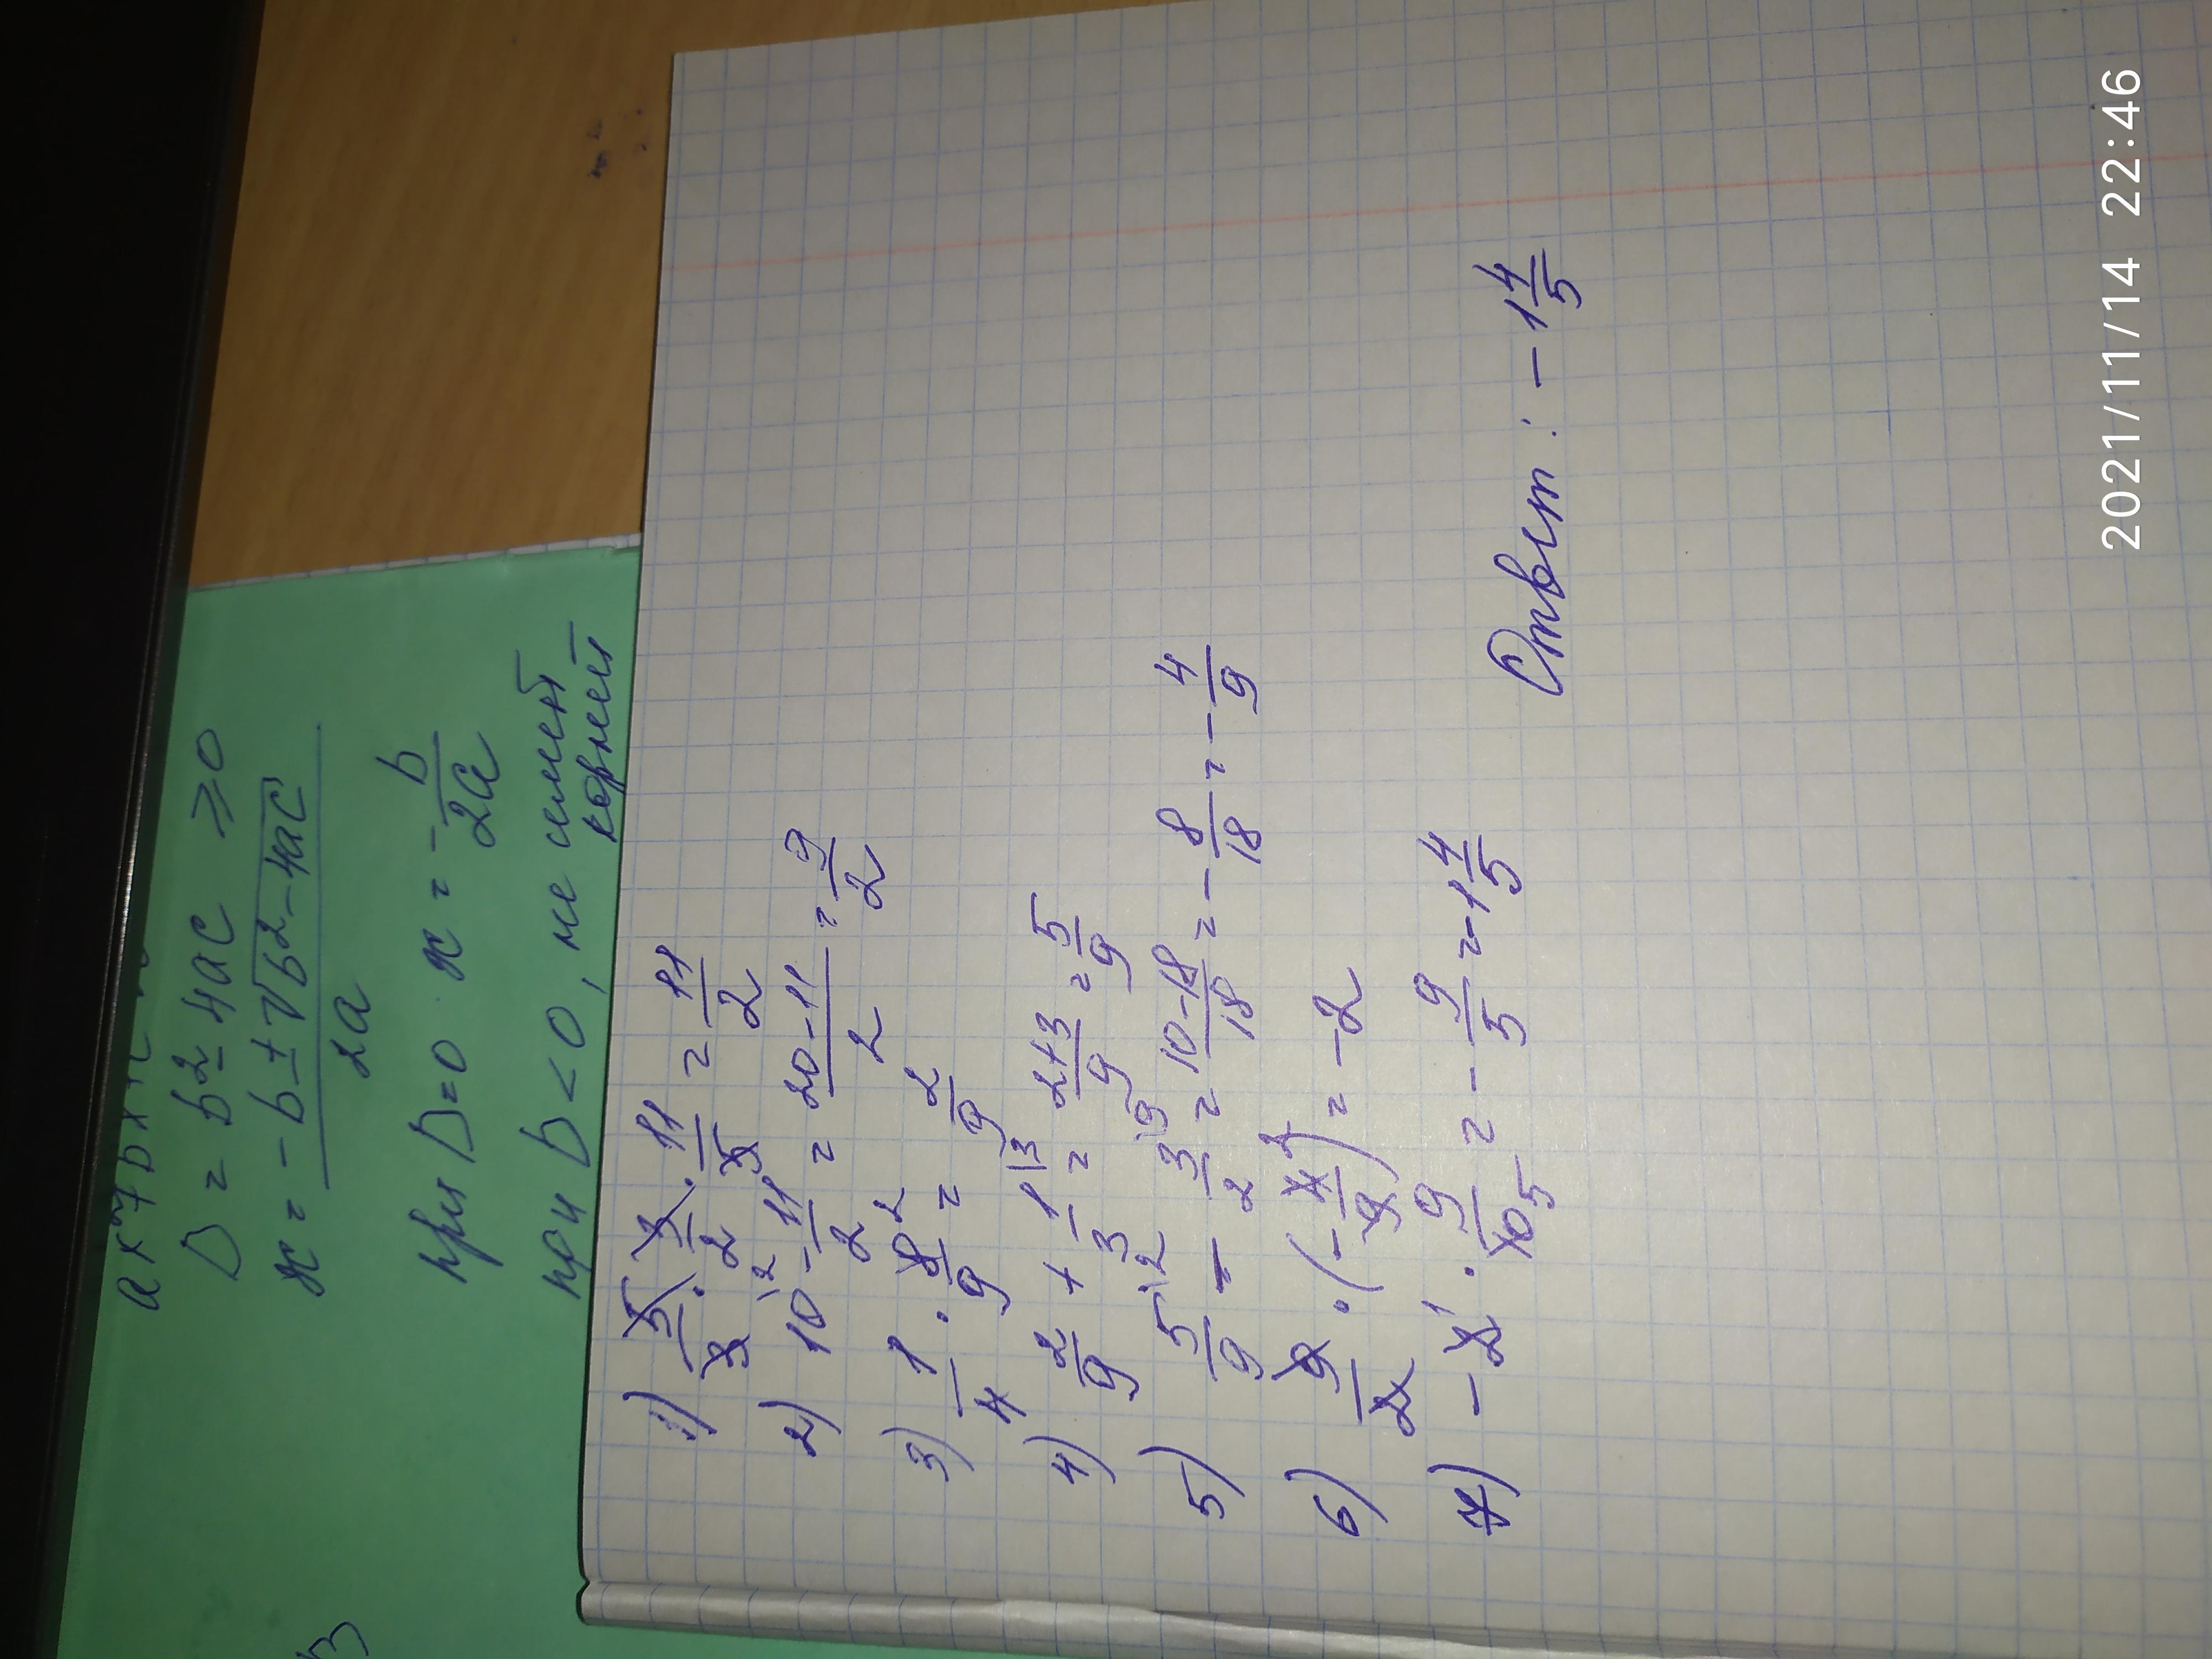 D = b² - 4ac ⩾ 0
x = (-b ± √(b² - 4ac)) / 2a
при D=0 x = - b/2a
при D < 0, не имеет
корней
1) 5/3 · 3/2 · 11/5 = 11/2
2) 10 - 11/2 = (20-11)/2 = 9/2
3) 1/4 · 8/9 = 2/9
4) 2/9 + 1/3 = (2+3)/9 = 5/9
5) 5/9 - 2 = (10-18)/18 = -8/18 = -4/9
6) 9/2 · (-4/9) = -2
7) -2 · 9/10 = -9/5 = -1 4/5
Ответ: -1 4/5
2021/11/14 22:46